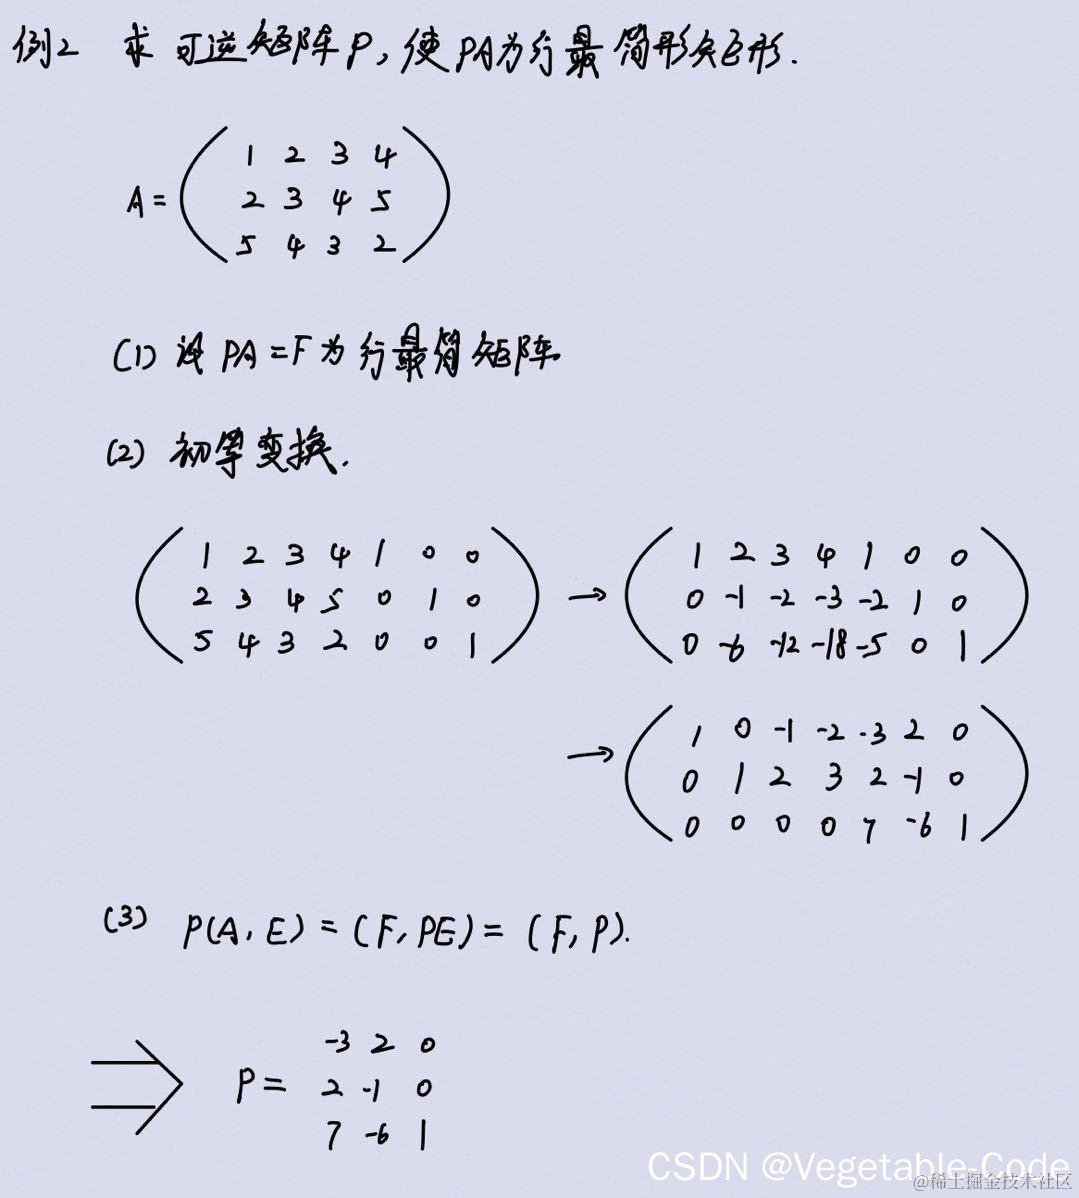 例2 求可逆矩阵P,使PA为行最简形矩形.
1 2 3 4
A= 2 3 4 5
5 4 3 2
(1) 设 PA=F为行最简矩阵
(2) 初等变换.
1 2 3 4 1 0 0 → 1 2 3 4 1 0 0
2 3 4 5 0 1 0 0 -1 -2 -3 -2 1 0
5 4 3 2 0 0 1 0 -6 -12 -18 -5 0 1
→ 1 0 -1 -2 -3 2 0
0 1 2 3 2 -1 0
0 0 0 0 7 -6 1
(3) P(A,E)=(F,PE)=(F,P).
-3 2 0
⇒ P= 2 -1 0
7 -6 1
CSDN @Vegetable-Code
@稀土掘金技术社区